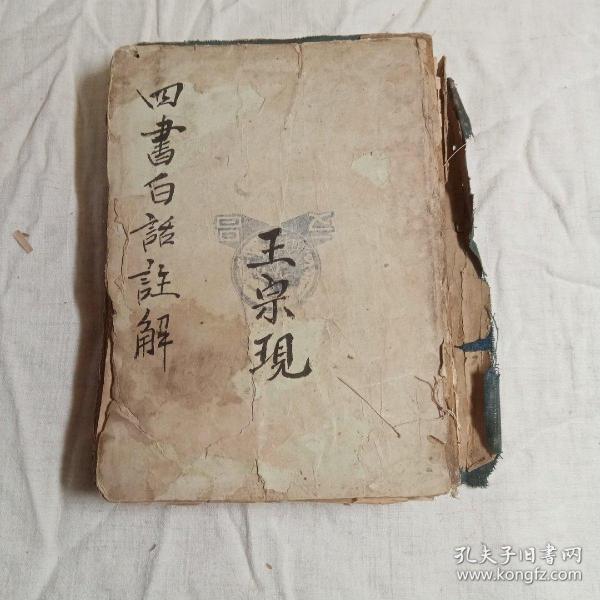 四書白話註解
王宗現
孔夫子旧书网
www.kongfz.com